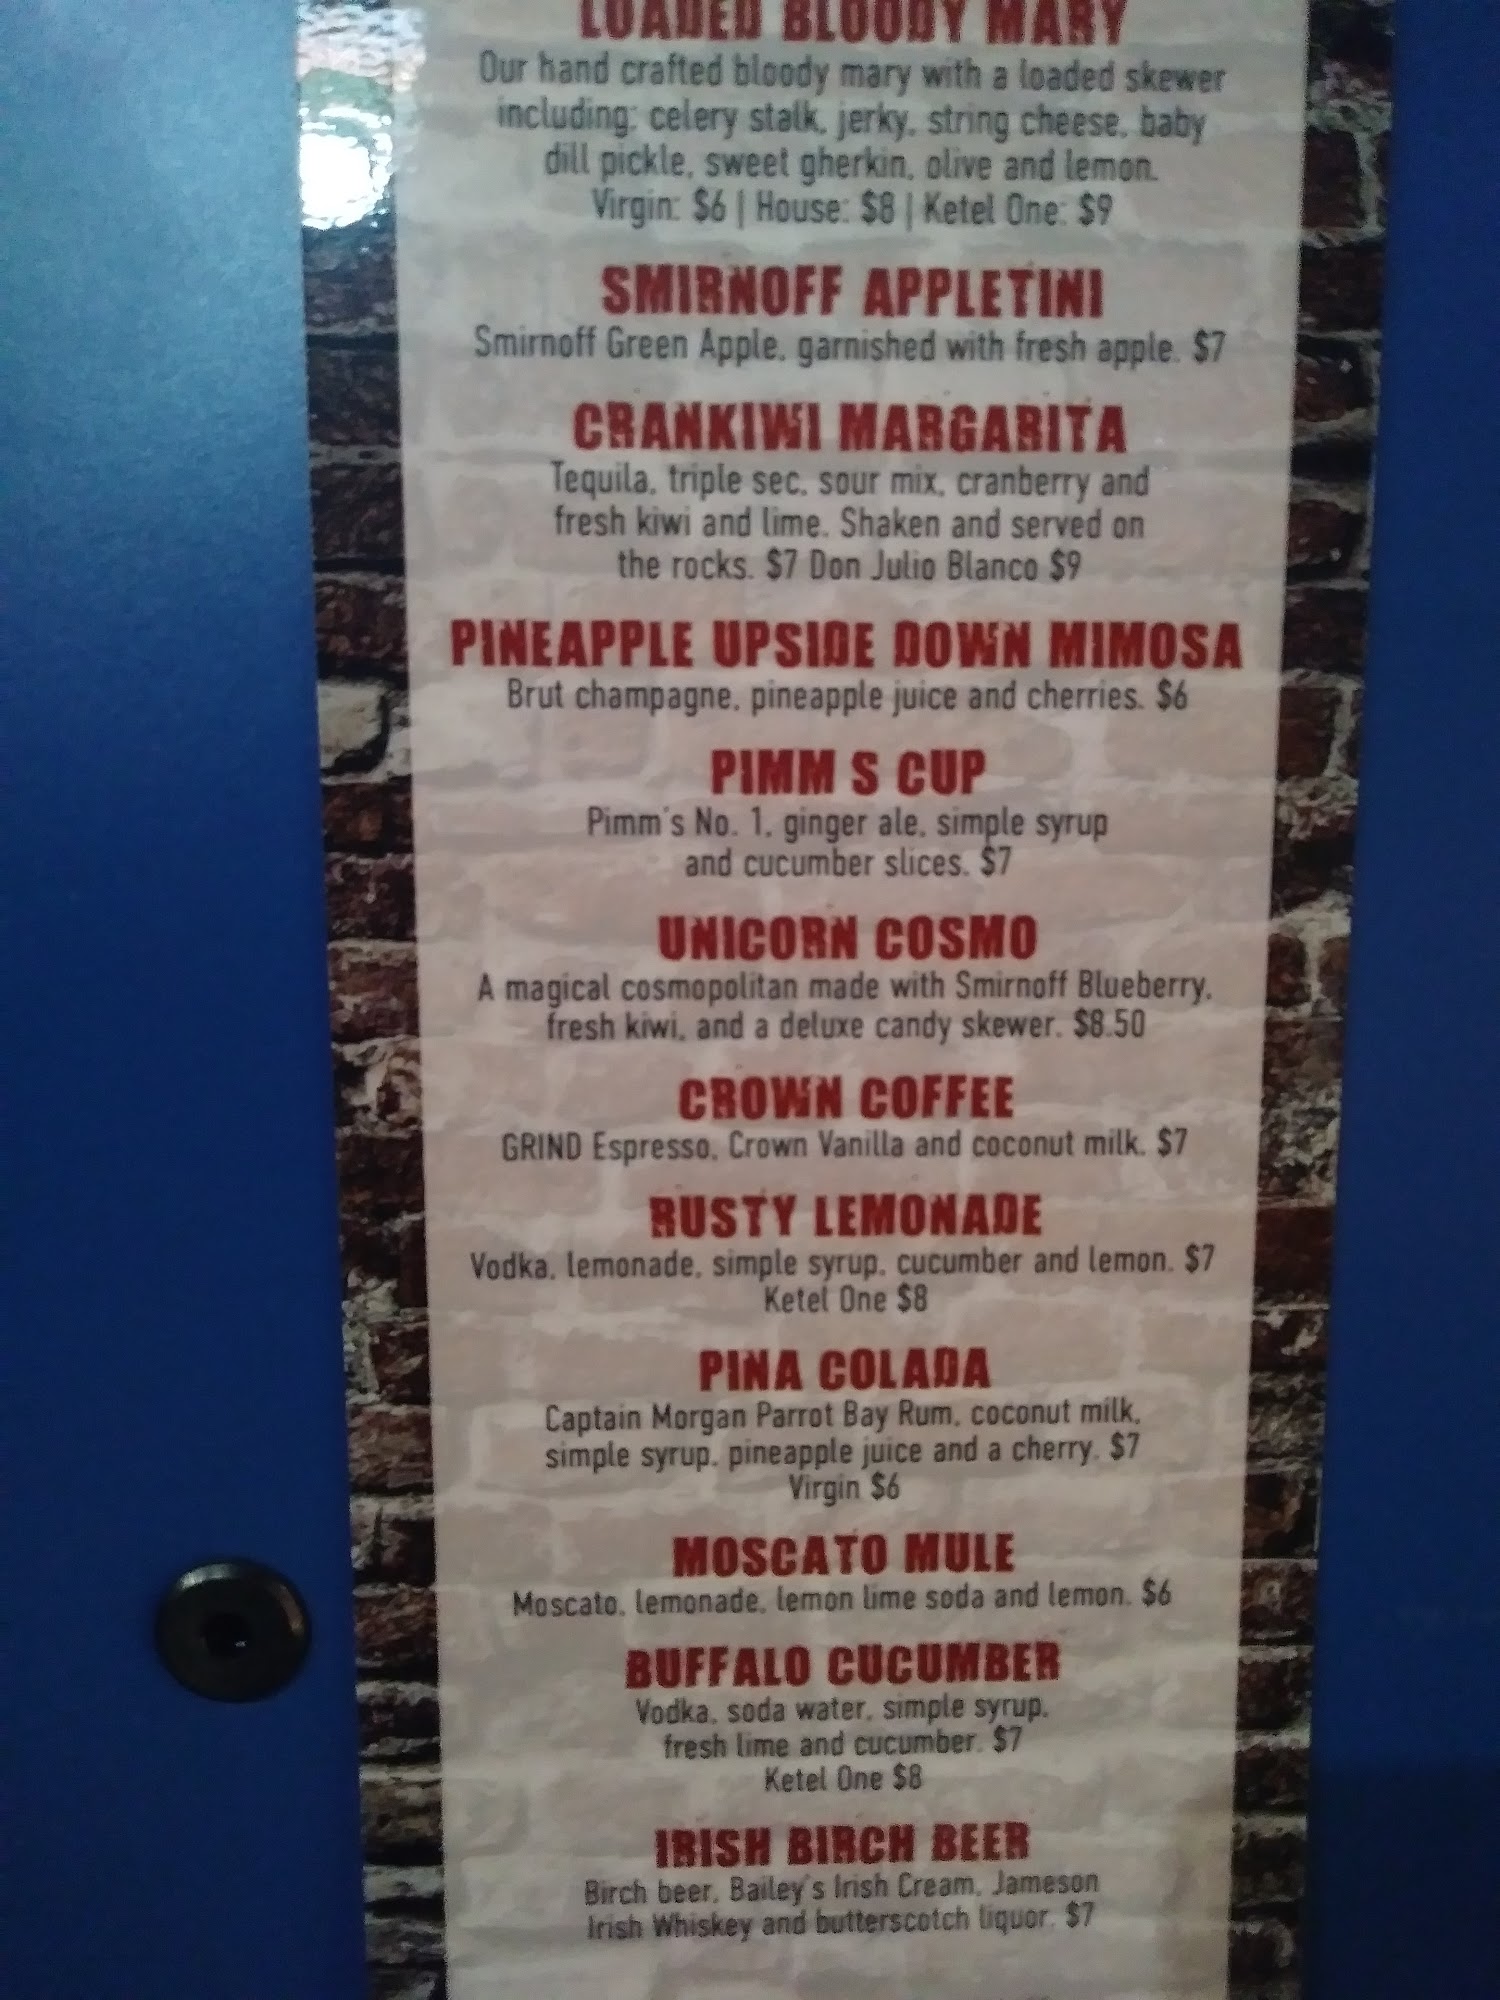 LOADED BLOODY MARY
Our hand crafted bloody mary with a loaded skewer
including: celery stalk, jerky, string cheese, baby
dill pickle, sweet gherkin, olive and lemon.
Virgin: $6 | House: $8 | Ketel One: $9
SMIRNOFF APPLETINI
Smirnoff Green Apple, garnished with fresh apple. $7
CRANKIWI MARGARITA
Tequila, triple sec, sour mix, cranberry and
fresh kiwi and lime. Shaken and served on
the rocks. $7 Don Julio Blanco $9
PINEAPPLE UPSIDE DOWN MIMOSA
Brut champagne, pineapple juice and cherries. $6
PIMM S CUP
Pimm's No. 1, ginger ale, simple syrup
and cucumber slices. $7
UNICORN COSMO
A magical cosmopolitan made with Smirnoff Blueberry,
fresh kiwi, and a deluxe candy skewer. $8.50
CROWN COFFEE
GRIND Espresso, Crown Vanilla and coconut milk. $7
RUSTY LEMONADE
Vodka, lemonade, simple syrup, cucumber and lemon. $7
Ketel One $8
PINA COLADA
Captain Morgan Parrot Bay Rum, coconut milk,
simple syrup, pineapple juice and a cherry. $7
Virgin $6
MOSCATO MULE
Moscato, lemonade, lemon lime soda and lemon. $6
BUFFALO CUCUMBER
Vodka, soda water, simple syrup,
fresh lime and cucumber. $7
Ketel One $8
IRISH BIRCH BEER
Birch beer, Bailey's Irish Cream, Jameson
Irish Whiskey and butterscotch liquor. $7